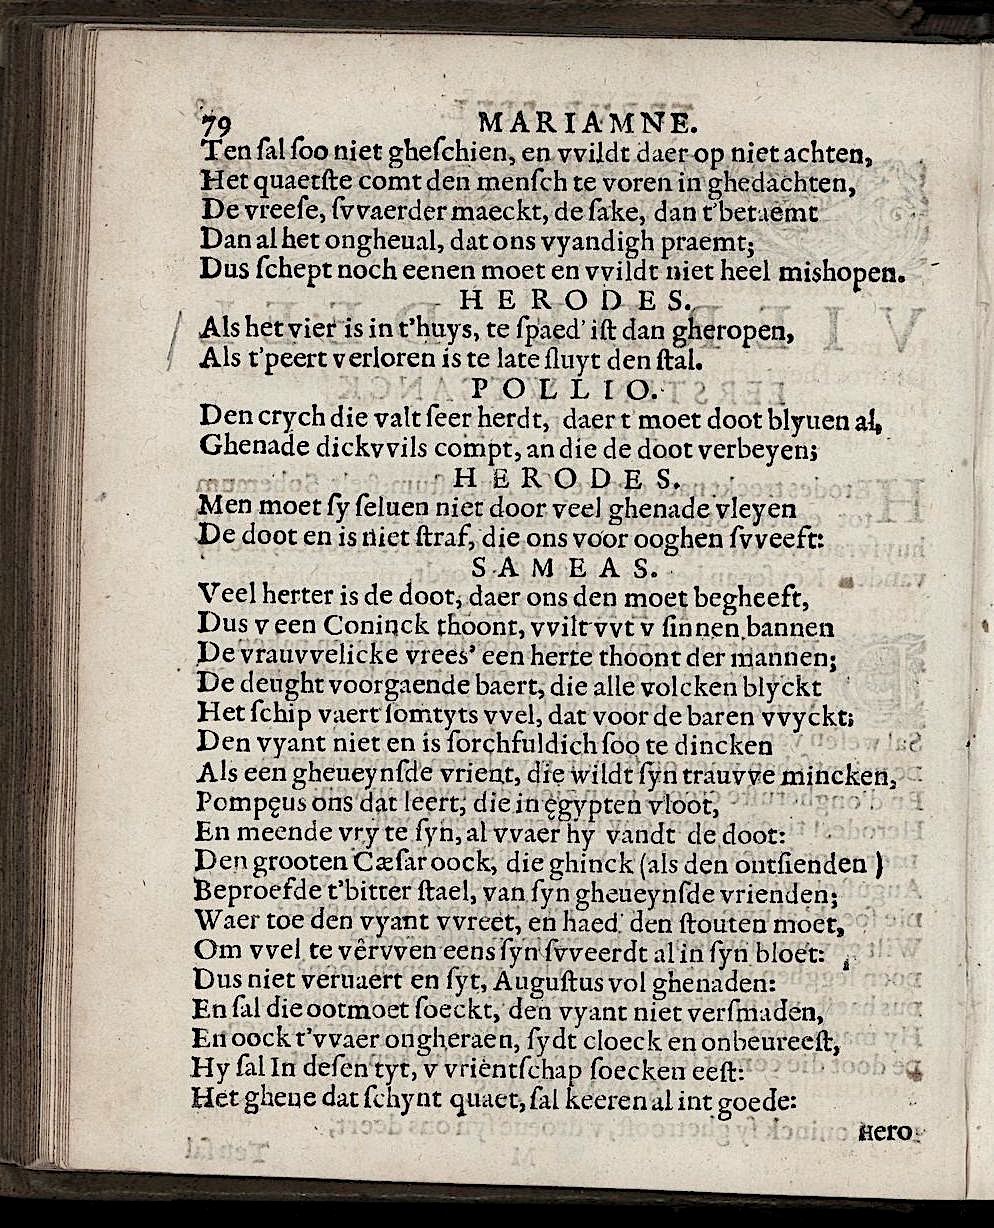 79 MARIAMNE.
Ten ſal ſoo niet gheſchien, en vvildt daer op niet achten,
Het quaetſte comt den menſch te voren in ghedachten,
De vreeſe, ſvvaerder maeckt, de ſake, dan t'betaemt
Dan al het ongheual, dat ons vyandigh praemt;
Dus ſchept noch eenen moet en vvildt niet heel mishopen.
HERODES.
Als het vier is in t'huys, te ſpaed' iſt dan gheropen,
Als t'peert verloren is te late ſluyt den ſtal.
POLLIO.
Den crych die valt ſeer herdt, daer t moet doot blyuen al,
Ghenade dickvvils compt, an die de doot verbeyen;
HERODES.
Men moet ſy ſeluen niet door veel ghenade vleyen
De doot en is niet ſtraf, die ons voor ooghen ſvveeft:
SAMEAS.
Veel herter is de doot, daer ons den moet begheeft,
Dus v een Coninck thoont, vvilt vvt v ſinnen bannen
De vrauvvelicke vrees' een herte thoont der mannen;
De deught voorgaende baert, die alle volcken blyckt
Het ſchip vaert ſomtyts vvel, dat voor de baren vvyckt;
Den vyant niet en is ſorchfuldich ſoo te dincken
Als een gheueynſde vrient, die wildt ſyn trauvve mincken,
Pompęus ons dat leert, die in ęgypten vloot,
En meende vry te ſyn, al vvaer hy vandt de doot:
Den grooten Cæſar oock, die ghinck (als den ontſienden)
Beproefde t'bitter ſtael, van ſyn gheueynſde vrienden;
Waer toe den vyant vvreet, en haed' den ſtouten moet,
Om vvel te vêrvven eens ſyn ſvveerdt al in ſyn bloet:
Dus niet veruaert en ſyt, Auguſtus vol ghenaden:
En ſal die ootmoet ſoeckt, den vyant niet verſmaden,
En oock t'vvaer ongheraen, ſydt cloeck en onbeureeſt,
Hy ſal In deſen tyt, v vriëntſchap ſoecken eeſt:
Het ghene dat ſchynt quaet, ſal keeren al int goede:
Hero